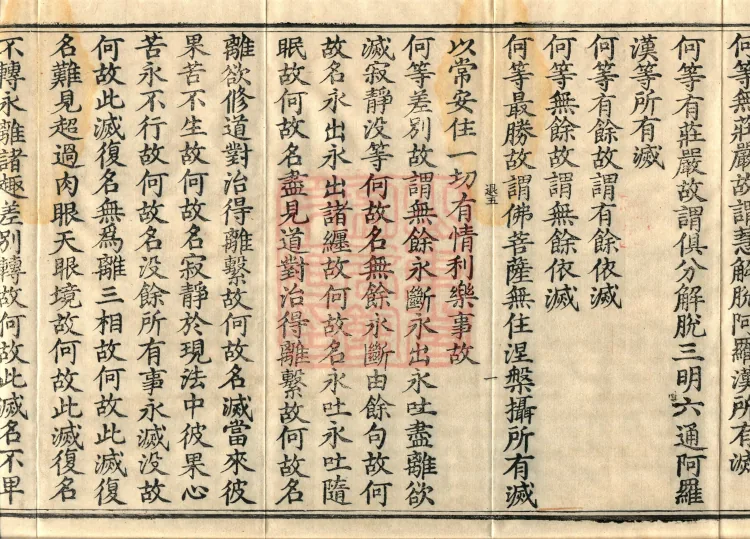 何等無莊嚴故謂慧解脫阿羅漢所有滅
何等有莊嚴故謂俱分解脫三明六通阿羅
漢等所有滅
何等有餘故謂有餘依滅
何等無餘故謂無餘依滅
何等最勝故謂佛菩薩無住涅槃攝所有滅
以常安住一切有情利樂事故
何等差別故謂無餘永斷永出永吐盡離欲
滅寂靜没等何故名無餘永斷由餘句故何
故名永出永出諸纏故何故名永吐永吐隨
眠故何故名盡見道對治得離繫故何故名
離欲修道對治得離繫故何故名滅當來彼
果苦不生故何故名寂靜於現法中彼果心
苦永不行故何故名没餘所有事永滅没故
何故此滅復名無爲離三相故何故此滅復
名難見超過肉眼天眼境故何故此滅復名
不轉永離諸趣差別轉故何故此滅名不卑